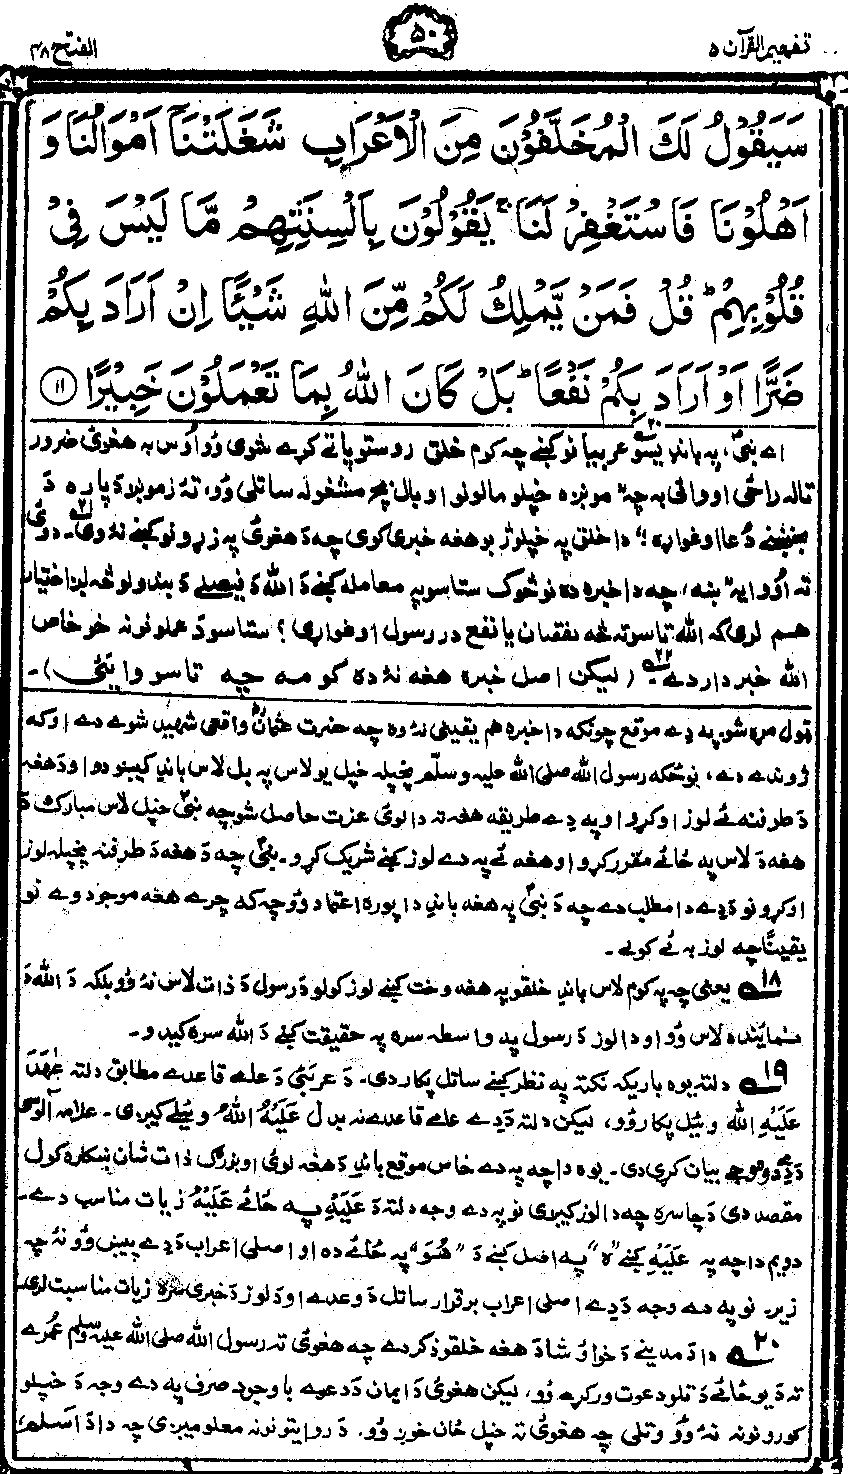 تفهيم القرآن ۵
۵۰
الفتح ۴۸
سَيَقُوْلُ لَكَ الْمُخَلَّفُوْنَ مِنَ الْاَعْرَابِ شَغَلَتْنَاۤ اَمْوَالُنَا وَ
اَهْلُوْنَا فَاسْتَغْفِرْ لَنَا ۚ يَقُوْلُوْنَ بِاَلْسِنَتِهِمْ مَّا لَيْسَ فِيْ
قُلُوْبِهِمْ ؕ قُلْ فَمَنْ يَّمْلِكُ لَكُمْ مِّنَ اللهِ شَيْـًٔا اِنْ اَرَادَ بِكُمْ
ضَرًّا اَوْ اَرَادَ بِكُمْ نَفْعًا ؕ بَلْ كَانَ اللهُ بِمَا تَعْمَلُوْنَ خَبِيْرًا ⑪
اے نبیؐ، په بانډيسو عربيانو کښے چه کوم خلق روستو پاتے کړے شوی وُو اُوس به هغوئ ضرور
تاله راځی او وائی به چه "مونږه خپلو مالونو او بال بچ مشغوله ساتلی وُو، تهٔ زمونږ دَپاره دَ
بخښنے دُعا اوغواړه!" دا خلق په خپلو ژبو هغه خبرې کوی چه دَ هغوئ په زړونو کښے نهٔ وی۔ دوئ
ته اُووايه "ښه، چه دا خبره ده نو څوک ستاسو په معامله کښے دَ الله دَ فيصلے دَ بندولو څه لږ اختيار
هم لری که الله تاسو ته څه نقصان يا نفع در رسول اوغواړی؟ ستاسو دَ عملونو نه خو خاص
الله خبردار دے۔ (ليکن اصل خبره هغه نهٔ ده کومه چه تاسو وايئ)۔
قول مره شو۔ په دے موقع چونکه دا خبره هم يقينی نهٔ وه چه حضرت عثمانؓ واقعی شهيد شوے دے اوکه
ژوندے دے، نو ځکه رسول الله صلی الله عليه وسلم خپله خپل يو لاس په بل لاس باندِ کيښودو او دَ هغهٔ
دَ طرفنه ئے لوز اوکړو او په دے طريقه هغهٔ ته دا لوئ عزت حاصل شو چه نبیؐ خپل لاس مبارک دَ
هغهٔ دَ لاس په ځائے مقرر کړو او هغه ئے په دے لوز کښے شريک کړو۔ نبیؐ چه دَ هغهٔ دَ طرفنه خپله لوز
اوکړو نو دَ دے دا مطلب دے چه دَ نبیؐ په هغهٔ باندِ دا پوره اعتماد وُو چه که چرے هغه موجود وے نو
يقينًا چه لوز به ئے کولے۔
۱۸ يعنی چه په کوم لاس باندِ خلقو په هغه وخت کښے لوز کولو دَ رسول دَ ذات لاس نهٔ وُو بلکه دَ الله دَ
نمائنده لاس وُو او دا لوز دَ رسول په واسطه سره په حقيقت کښے دَ الله سره کيدو۔
۱۹ دلته يوه باريکه نکته په نظر کښے ساتل پکار دی۔ دَ عربئ دَ علمے قاعدے مطابق دلته عٰهَدَ
عَلَيْهِ اللهَ وئيل پکار وُو، ليکن دلته دَ دے علمے قاعدے نه بدل عَلَيْهُ اللهَ وئيلے کيږی۔ علامه آلوسی
دَ دے دوه وجے بيان کړی دی۔ يوه دا چه په دے خاص موقع باندِ دَ هغه لوئ او بزرګ ذات شان ښکاره کول
مقصد دی دَ چا سره چه دا لوز کيږی نو په دے وجه دلته دَ عَلَيْهِ په ځائے عَلَيْهُ زيات مناسب دے۔
دويم دا چه په عَلَيْهِ کښے "هٖ" په اصل کښے دَ "هُوَ" په ځائے ده او اصلی اعراب دَ دے پيښ وُو نهٔ چه
زير۔ نو په دے وجه دَ دے اصلی اعراب برقرار ساتل دَ وعدے او دَ لوز دَ خبرې سره زيات مناسبت لری۔
۲۰ دا دَ مدينے دَ خوا وُ شا دَ هغه خلقو ذکر دے چه هغوئ ته رسول الله صلی الله عليه وسلم عُمرے
ته دَ يو ځائے دَ تلو دعوت ورکړے وُو، ليکن هغوئ دَ ايمان دَ دعوے باوجود صرف په دے وجه دَ خپلو
کورونو نه نهٔ وُو وتلی چه هغوئ ته خپل ځان خوږ وُو۔ دَ روايتونو نه معلوميږی چه دا دَ اَسلم،